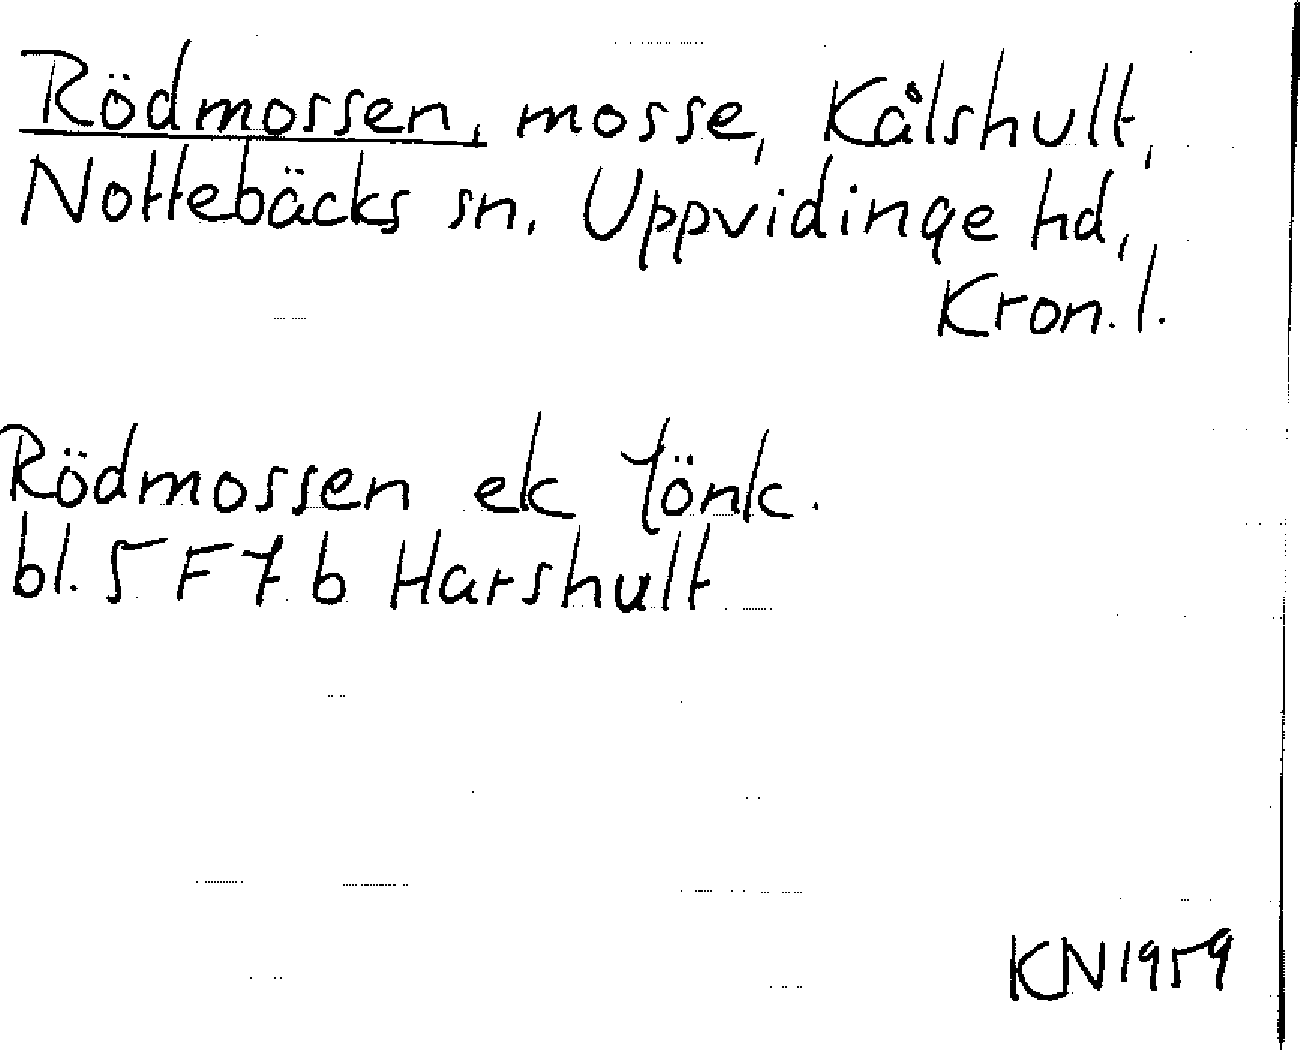 Rödmossen, mosse, Kålshult,
Nottebäcks sn. Uppvidinge hd,
Kron. l.
Rödmossen ek
bl. 5 F 7 b Harshult
KN 1959